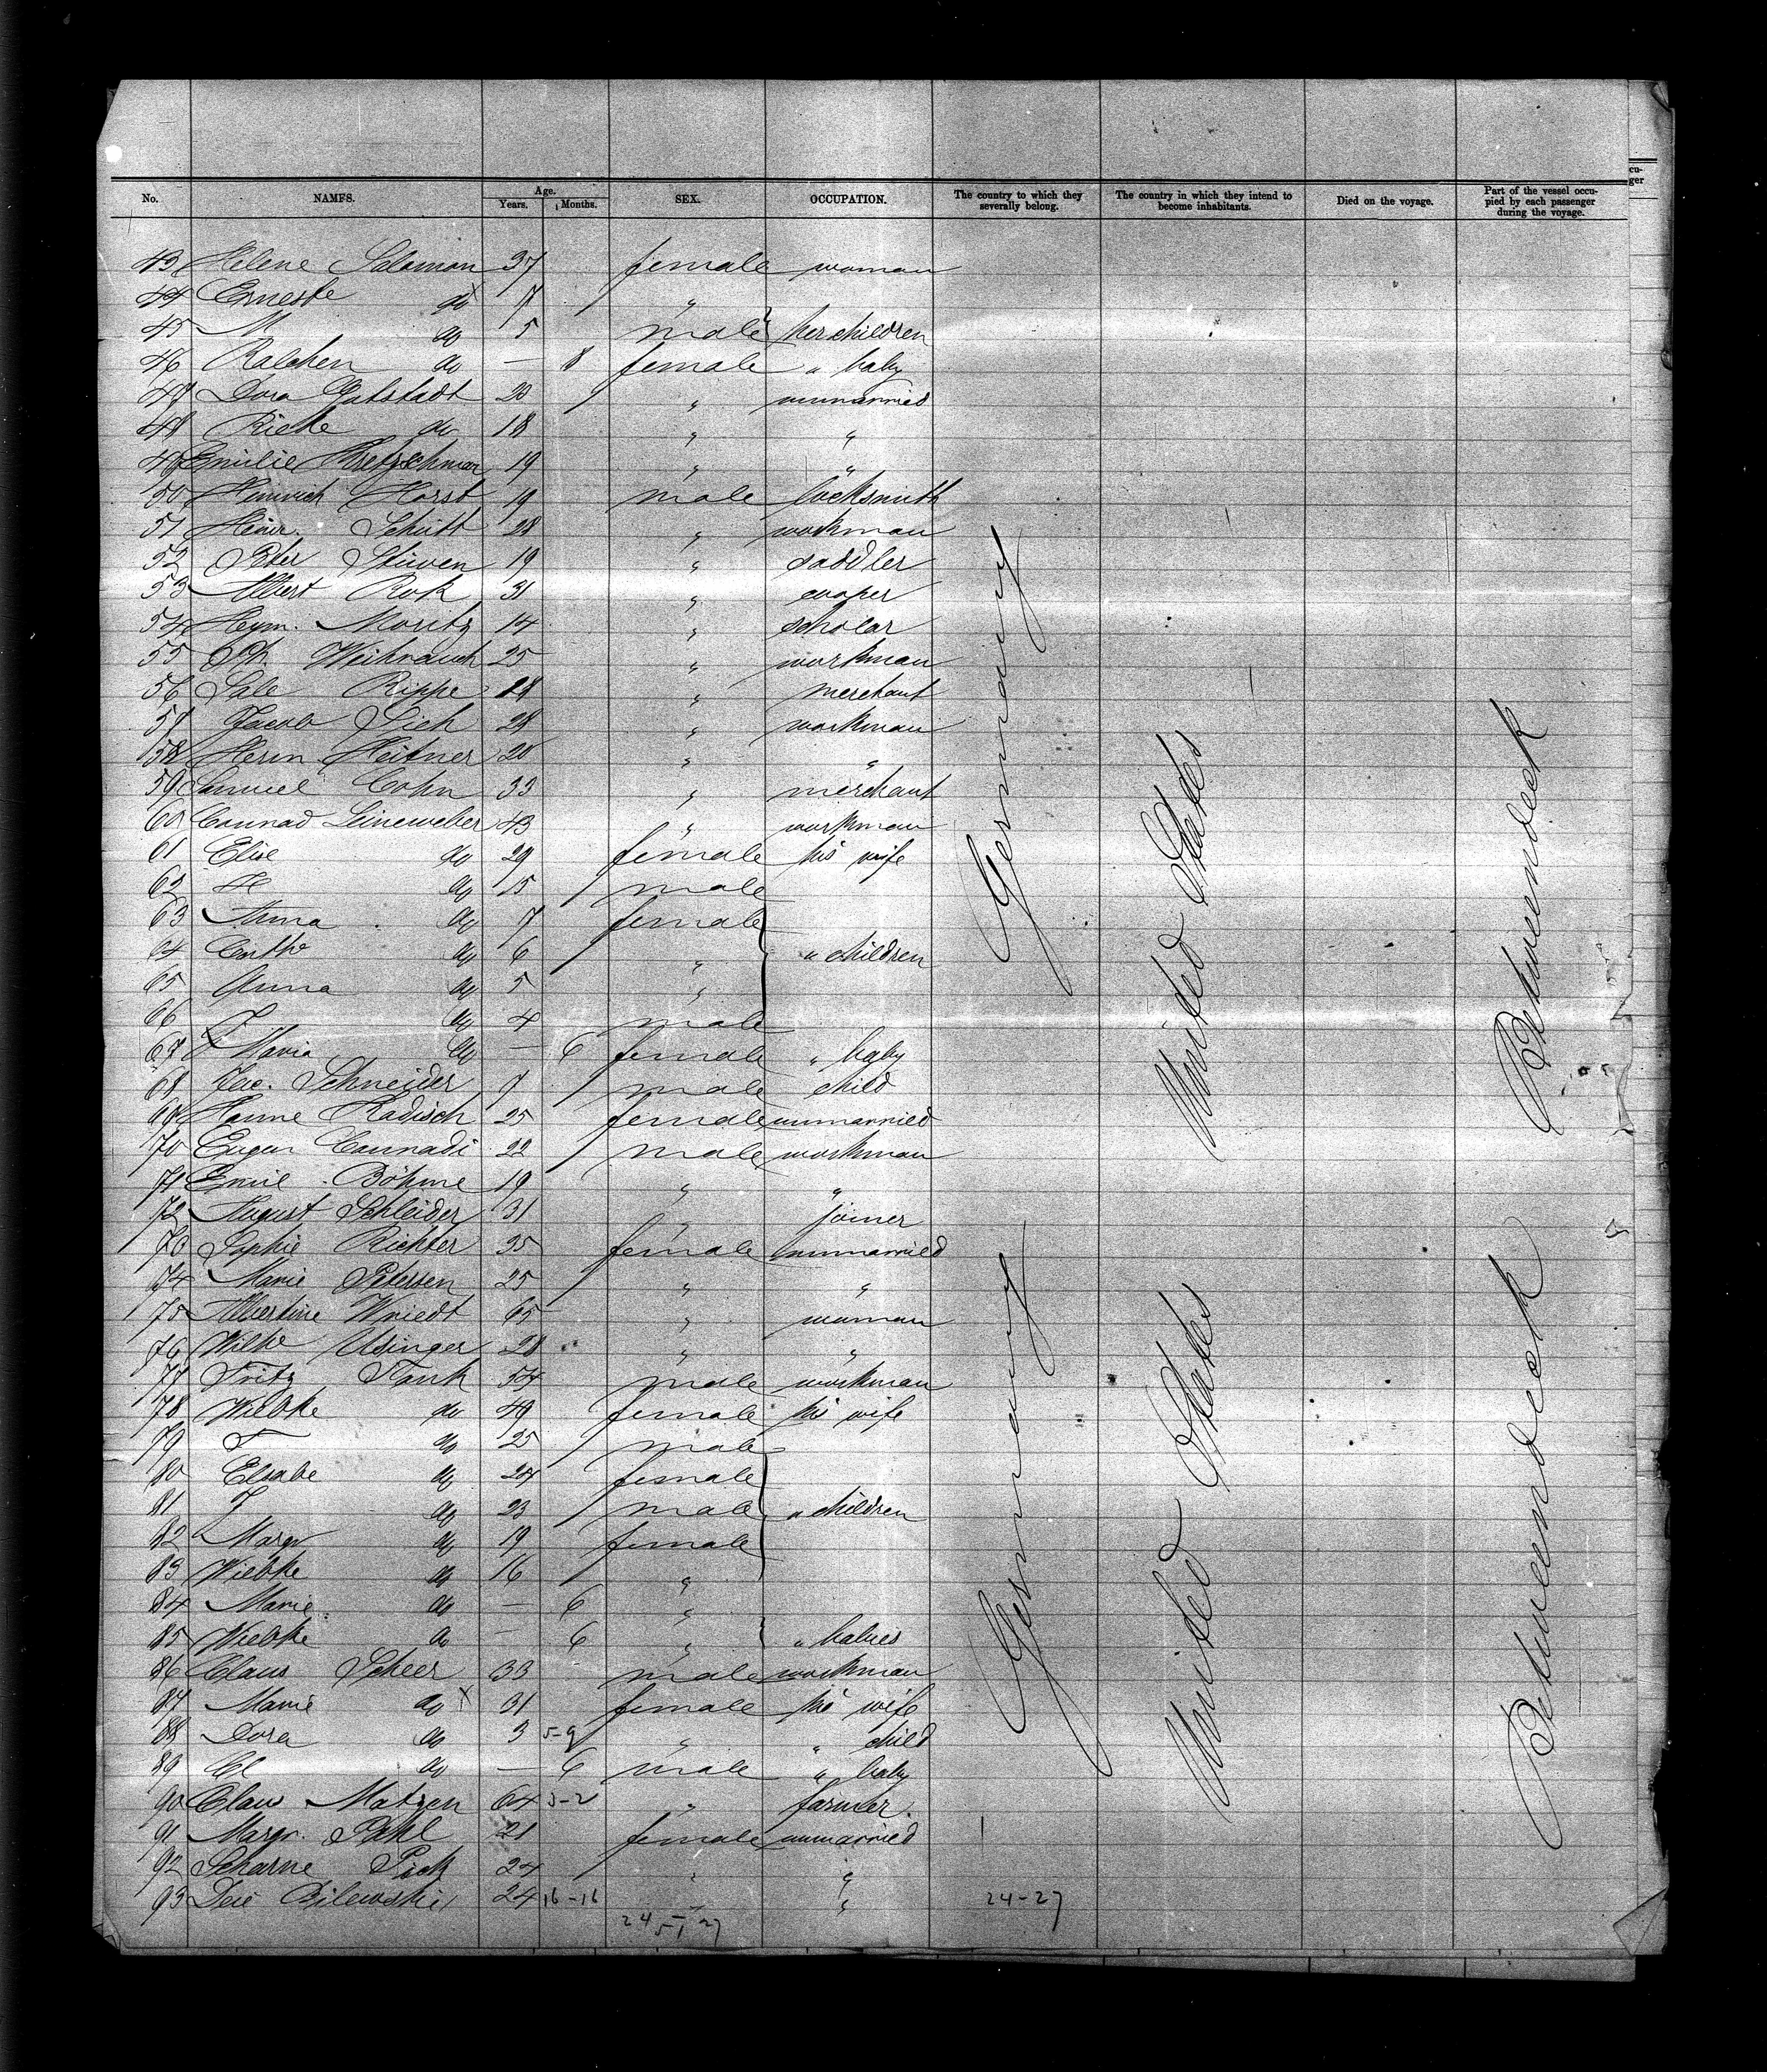 No. NAMES. Age. Years. Months. SEX. OCCUPATION. The country to which they severally belong. The country in which they intend to become inhabitants. Died on the voyage. Part of the vessel occupied by each passenger during the voyage.
43 Helene Salomon 37 female woman
44 Erneste do 7 "
45 M do 5 male her children
46 Ralchen do — 8 female " baby
47 Dora 20 " unmarried
48 Rieke do 18 " "
49 Emilie Kretzschmar 19 " "
50 Heinrich Horst 19 male locksmith
51 Heinr. Schütt 28 " workman
52 Peter Stüven 19 " saddler
53 Albert Rok 31 " cooper
54 Heym. Moritz 14 " scholar
55 Ph. Weihrauch 25 " workman
56 Sale Rippe 28 " merchant
57 Jacob Sich 28 " workman
58 Herm Heitner 20 " "
59 Samuel Cohn 33 " merchant
60 Conrad Leineweber 43 " workman
61 Elise do 29 female his wife
62 H do 15 male
63 Anna do 7 female
64 do 6 " " children
65 Anna do 5 "
66 J do 4 male
67 Maria do — 6 female " baby
68 Jac. Schneider 7 male child
69 Hanne Radisch 25 female unmarried
70 Eugen Conradi 22 male workman
71 Emil Böhme 19 " "
72 August Schleider 31 " joiner
73 Sophie Richter 35 female unmarried
74 Marie Petersen 25 " "
75 Albertine Wriedt 65 " woman
76 Wilke Usinger 28 " "
77 Fritz Tank 54 male workman
78 Wiebke do 49 female his wife
79 F do 25 male
80 Elsabe do 24 female
81 J do 23 male " children
82 Margr do 19 female
83 Wiebke do 16 "
84 Marie do — 6 "
85 Wiebke do — 6 " " babies
86 Claus Scheer 33 male workman
87 Marie do 31 female his wife
88 Dora do 3 5-9 " " child
89 Cl do — 6 male " baby
90 Claus Matzen 64 5-2 " farmer.
91 Margr. Pahl 21 female unmarried
92 Scharne Pick 24 " "
93 Bilewski 24 16-16 " "
24-27
Germany
United States
Betweendeck
Germany
United States
Betweendeck